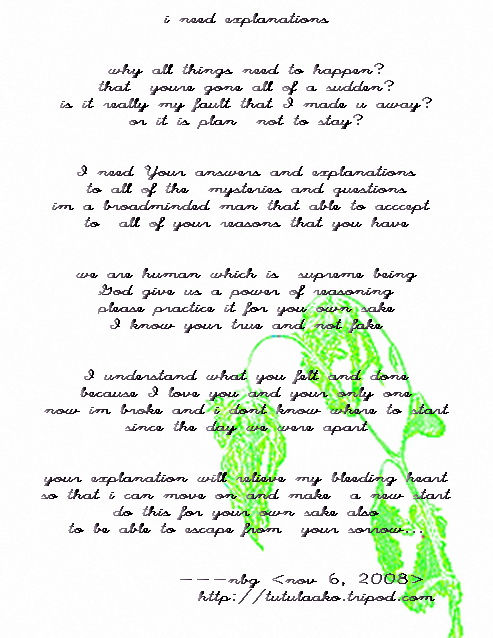 i need explanations
why all things need to happen?
that youre gone all of a sudden?
is it really my fault that I made u away?
or it is plan not to stay?
I need Your answers and explanations
to all of the mysteries and questions
im a broadminded man that able to acccept
to all of your reasons that you have
we are human which is supreme being
God give us a power of reasoning
please practice it for you own sake
I know your true and not fake
I understand what you felt and done
because I love you and your only one
now im broke and i dont know where to start
since the day we were apart
your explanation will relieve my bleeding heart
so that i can move on and make a new start
do this for your own sake also
to be able to escape from your sorrow...
---nbg <nov 6, 2008>
http://tutulaako.tripod.com